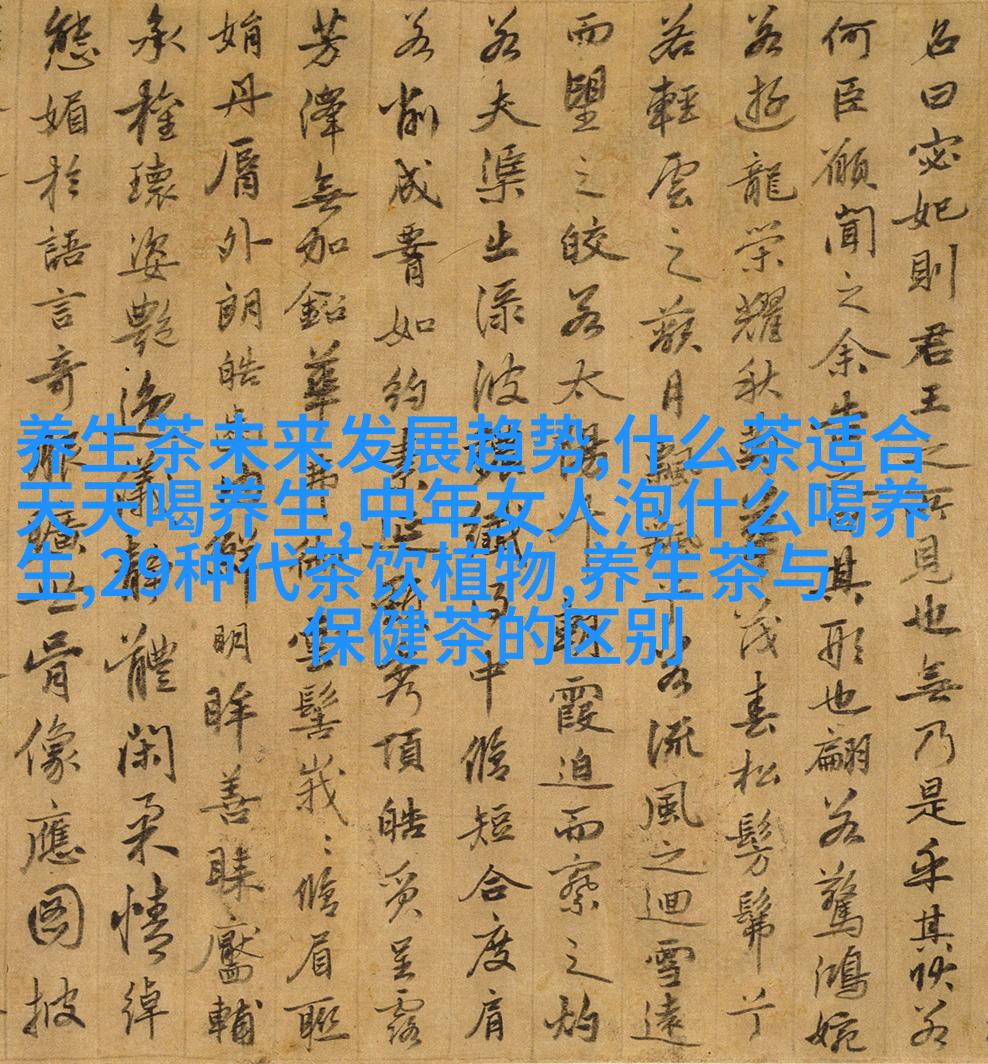 养生茶未来发展趋势,什么茶适合
天天喝养生,中年女人泡什么喝养
生,29种代茶饮植物,养生茶与
保健茶的区别
名曰宓妃則君王之所見也無乃是乎其狀若
何臣願聞之余告之曰其形也翩若驚鴻婉
若遊龍榮耀秋菊華茂春松髣髴兮
若輕雲之蔽月飄颻兮若流風之迴雪遠
而望之皎若太陽升朝霞迫而察之灼
若夫渠出淥波穠纖得中脩短合度肩
若削成腰如約素延頸秀項皓質呈露
芳澤無加鉛華弗御雲髻峩〻脩眉聯
娟丹脣外朗皓齒內鮮明眸善睞靨輔
承權瓌姿艷逸儀靜體閑柔情綽
態媚於語言奇服曠世骨像應圖披